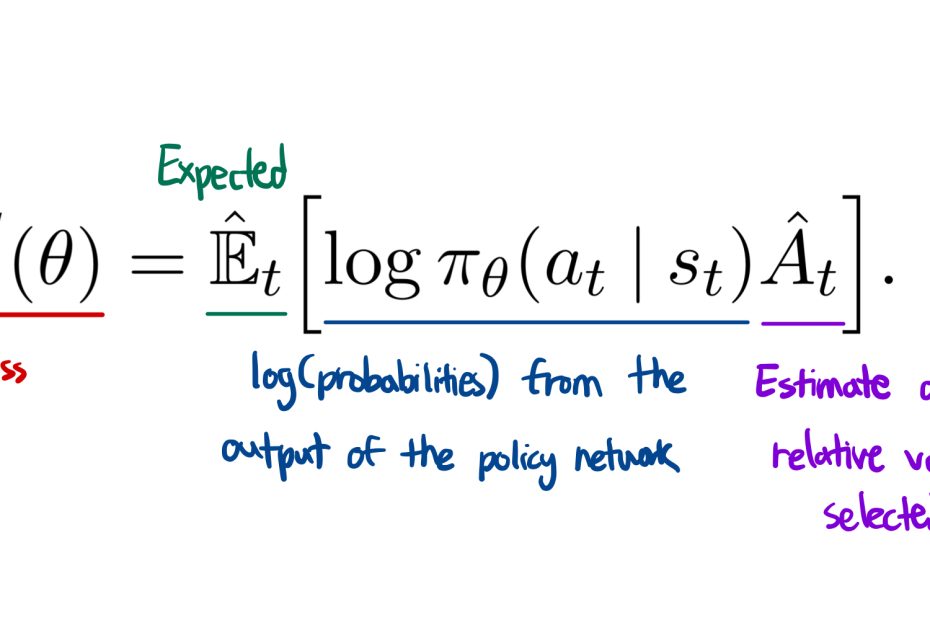 Expected
(θ) = Ê_t [ log π_θ(a_t | s_t) Â_t ] .
log(probabilities) from the
output of the policy network
Estimate
relative